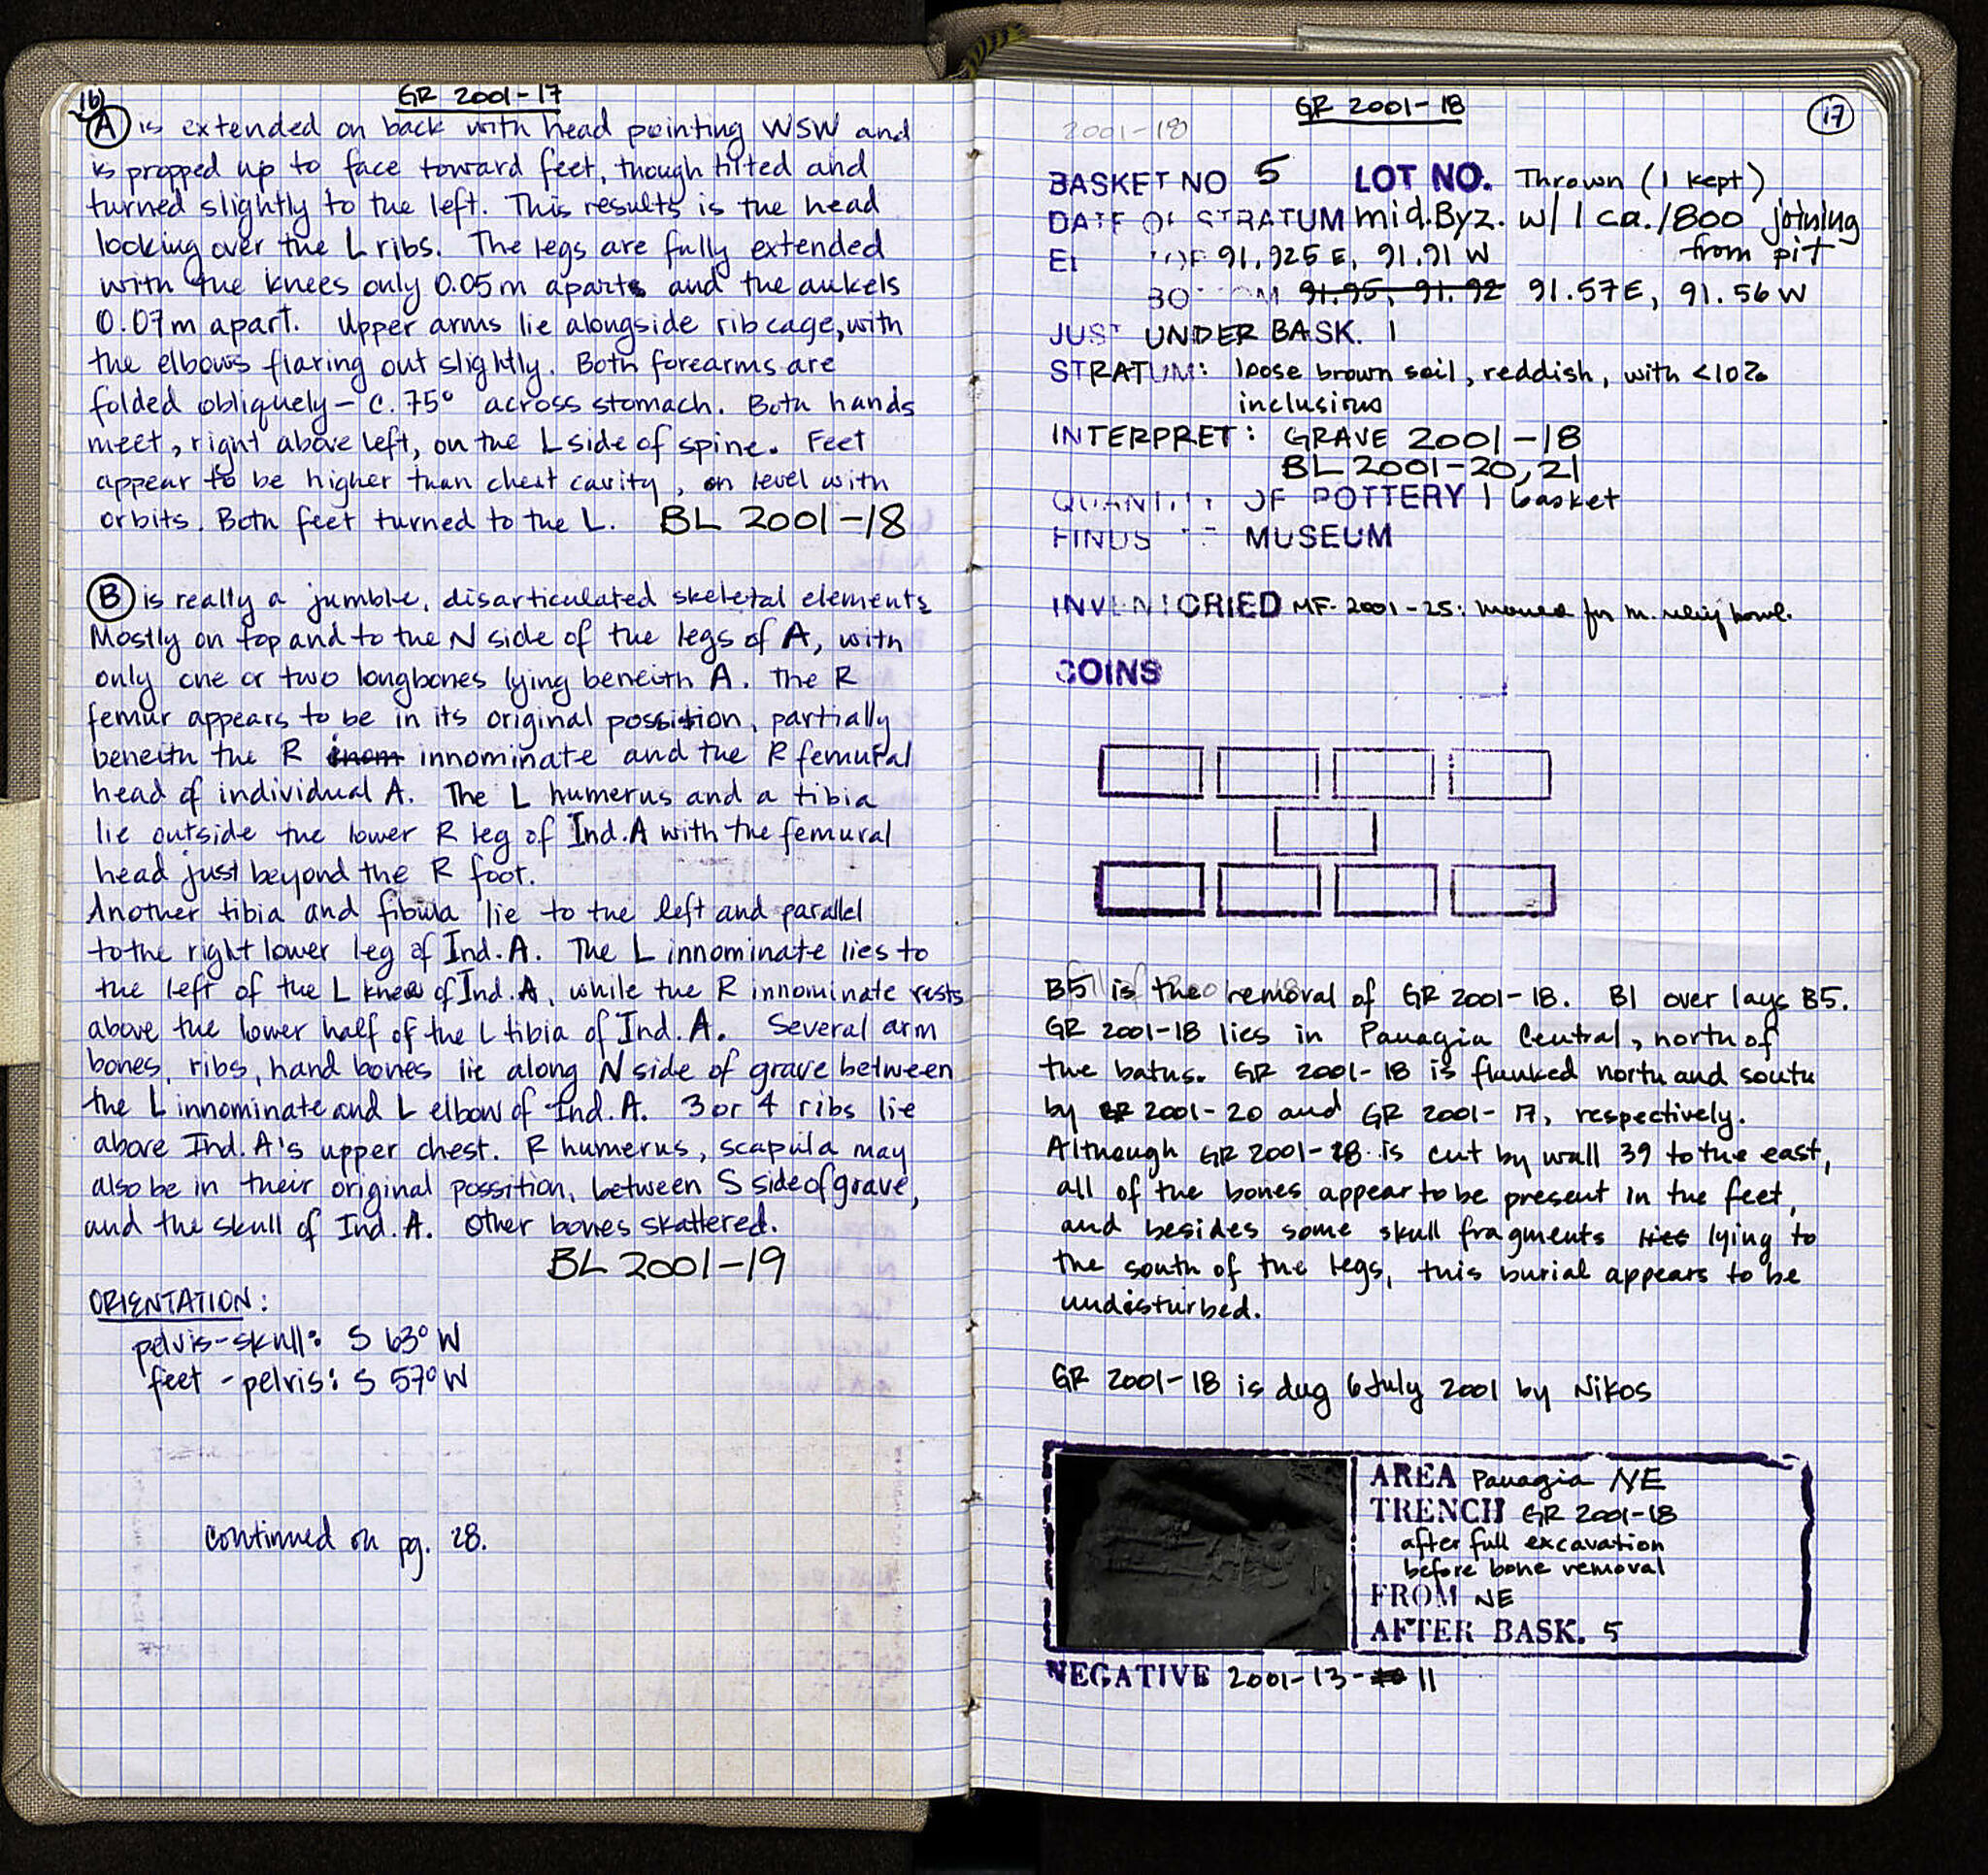 16
GR 2001-17
(A) is extended on back with head pointing WSW and
is propped up to face toward feet, though tilted and
turned slightly to the left. This results is the head
looking over the L ribs. The legs are fully extended
with the knees only 0.05m aparts and the ankels
0.07m apart. Upper arms lie alongside rib cage, with
the elbows flaring out slightly. Both forearms are
folded obliquely - c. 75° across stomach. Both hands
meet, right above left, on the L side of spine. Feet
appear to be higher than chest cavity, on level with
orbits. Both feet turned to the L. BL 2001-18
(B) is really a jumble, disarticulated skeletal elements
Mostly on top and to the N side of the legs of A, with
only one or two longbones lying beneith A. The R
femur appears to be in its original possition, partially
beneith the R inom innominate and the R femural
head of individual A. The L humerus and a tibia
lie outside the lower R leg of Ind. A with the femural
head just beyond the R foot.
Another tibia and fibula lie to the left and parallel
to the right lower leg of Ind. A. The L innominate lies to
the left of the L knee of Ind. A, while the R innominate rests
above the lower half of the L tibia of Ind. A. Several arm
bones, ribs, hand bones lie along N side of grave between
the L innominate and L elbow of Ind. A. 3 or 4 ribs lie
above Ind. A's upper chest. R humerus, scapula may
also be in their original possition, between S side of grave,
and the skull of Ind. A. Other bones skattered.
BL 2001-19
ORIENTATION:
pelvis-skull: S 63° W
feet - pelvis: S 57° W
continued on pg. 28.
GR 2001-18
17
2001-18
BASKET NO 5 LOT NO. Thrown (1 kept)
DATE OF STRATUM mid. Byz. w/ 1 ca. 1800 joining
from pit
El TOP 91.925 E, 91.91 W
BOTTOM 91.95, 91.92 91.57E, 91.56 W
JUST UNDER BASK. 1
STRATUM: loose brown soil, reddish, with <10%
inclusions
INTERPRET: GRAVE 2001-18
BL 2001-20, 21
QUANTITY OF POTTERY 1 basket
FINDS TO MUSEUM
INVENTORIED MF-2001-25: moved for m.
COINS
B5 is the removal of GR 2001-18. B1 over lays B5.
GR 2001-18 lies in Panagia Central, north of
the baths. GR 2001-18 is flanked north and south
by GR 2001-20 and GR 2001-17, respectively.
Although GR 2001-18 is cut by wall 39 to the east,
all of the bones appear to be present in the feet,
and besides some skull fragments lies lying to
the south of the legs, this burial appears to be
undisturbed.
GR 2001-18 is dug 6 July 2001 by Nikos
AREA Panagia NE
TRENCH GR 2001-18
after full excavation
before bone removal
FROM NE
AFTER BASK. 5
NEGATIVE 2001-13-11